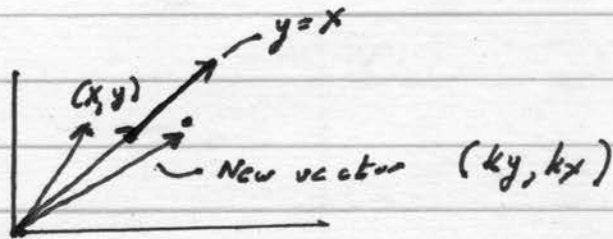 y = x
(x, y)
New vector (ky, kx)